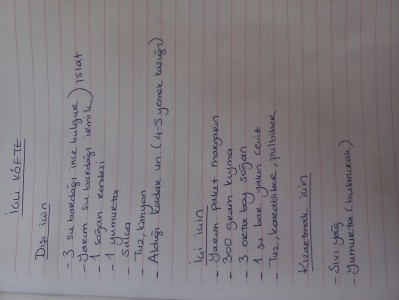 İÇLİ KÖFTE
Dışı için
- 3 su bardağı ince bulgur
- Yarım su bardağı irmik
Islat
- 1 soğan rendesi
- 1 yumurta
- Salça
- Tuz, kimyon
- Aldığı kadar un (4-5 yemek kaşığı)
İçi için
- Yarım paket margarin
- 300 gram kıyma
- 3 orta boy soğan
- 1 su bar. yakın ceviz
- Tuz, karabiber, pulbiber
Kızartmak için
- Sıvı yağ
- Yumurta (bulanacak)